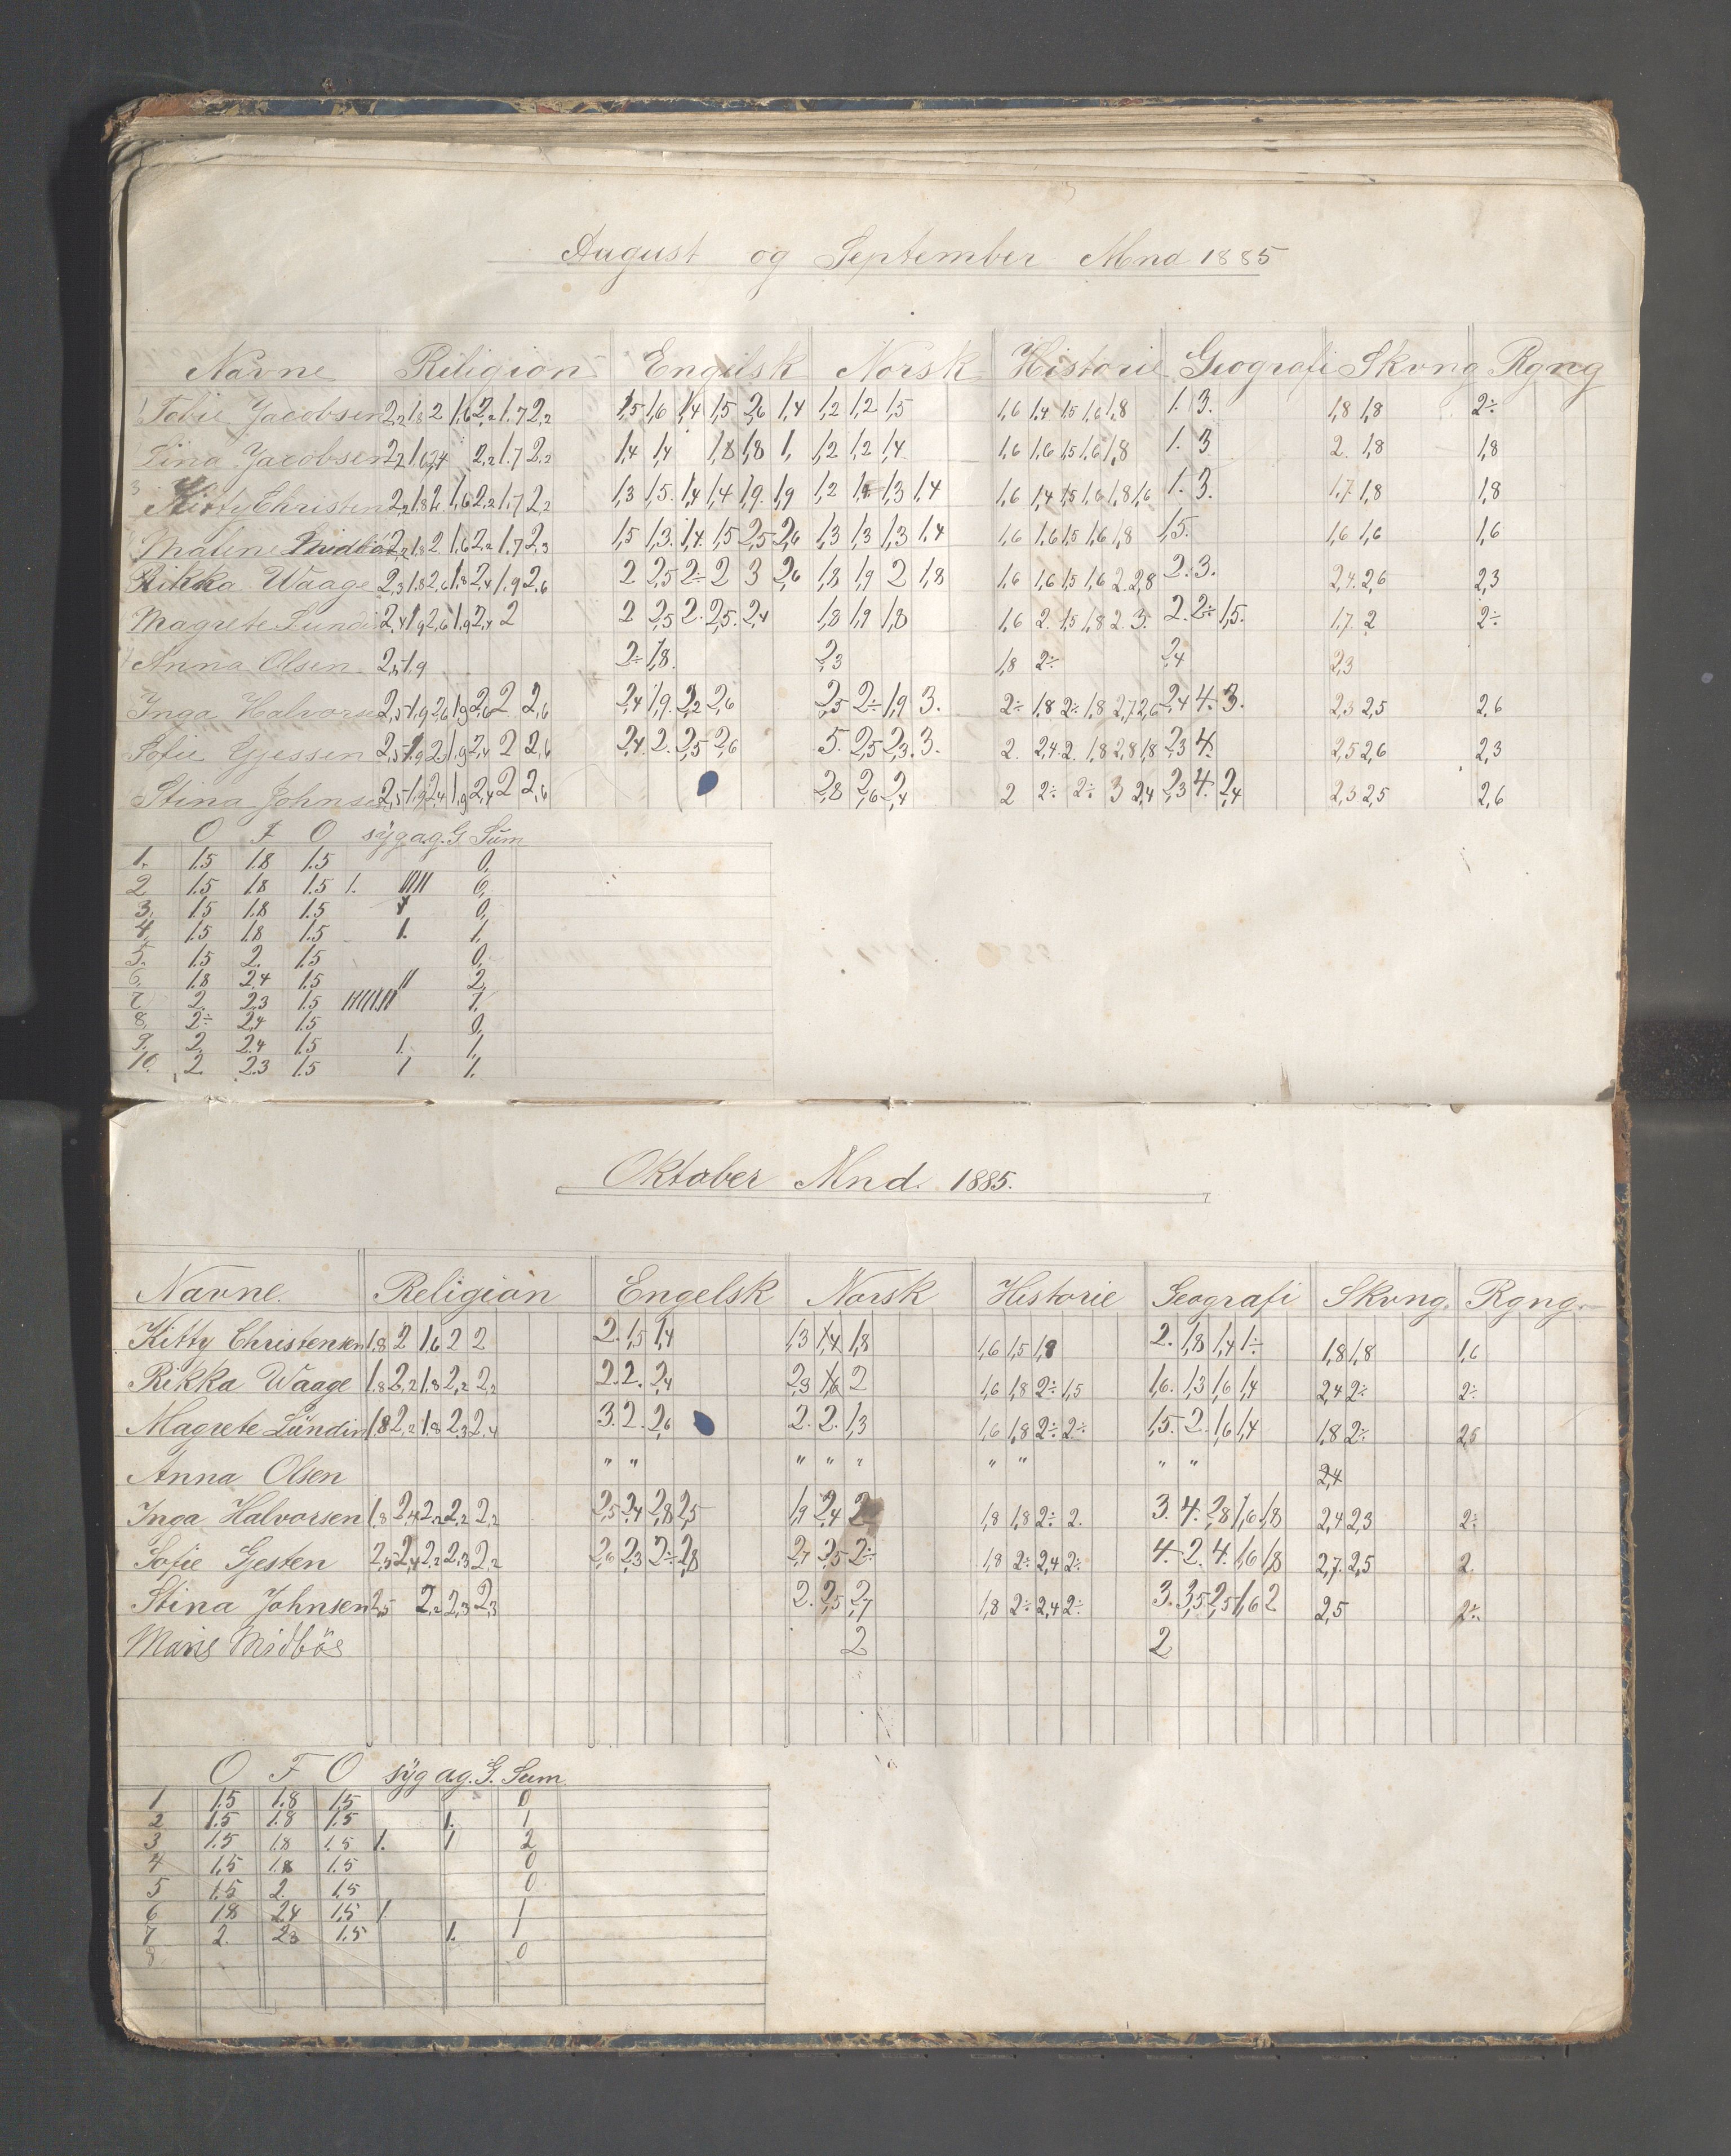 August og September Mnd 1885
Navne Religion Engelsk Norsk Historie Geografi Skvng Rgng
Tobie Jacobsen 2,2 1,8 2 1,6 2,2 1,7 2,2 1,5 1,6 1,4 1,5 2,6 1,4 1,2 1,2 1,5 1,6 1,4 1,5 1,6 1,8 1. 3. 1,8 1,8 2÷
Lina Jacobsen 2,2 2,2 1,7 2,2 1,4 1,4 1,8 1,8 1, 1,2 1,2 1,4 1,6 1,6 1,5 1,6 1,8 1. 3 2. 1,8 1,8
3 Kitty Christen 2,2 1,8 2. 1,6 2,2 1,7 2,2 1,3 1,5. 1,4 1,4 1,9. 1,9 1,2 1,3 1,4 1,6 1,4 1,5 1,6 1,8 1,6 1. 3. 1,7. 1,8 1,8
Malene Midbö 2,2 1,8 2 1,6 2,2 1,7 2,3 1,5 1,3. 1,4. 1,5 2,5 2,6 1,3 1,3 1,3 1,4 1,6 1,6 1,5 1,6 1,8 1,5. 1,6 1,6 1,6
Rikka Waage 2,3 1,8 2,6 1,8 2,4 1,9 2,6 2 2,5 2÷ 2 3 2,6 1,8 1,9 2 1,8 1,6 1,6 1,5 1,6 2 2,8 2. 3. 2,4. 2,6 2,3
Magrete Lundin 2,4 1,9 2,6 1,9 2,4 2 2 2,5 2. 2,5. 2,4 1,8 1,9 1,8 1,6 2. 1,5 1,8 2. 3. 2. 2÷ 1,5. 1,7. 2 2÷
Anna Olsen 2,5 1,9 2÷ 1,8. 2,3 1,8 2÷ 2,4 2,3
Inga Halvorse 2,5 1,9 2,6 1,9 2,6 2 2,6 2,4 1,9. 2,2 2,6 2,5 2÷ 1,9 3. 2÷ 1,8 2÷ 1,8 2,7 2,6 2,4 4. 3. 2,3 2,5 2,6
Sofie Gjessen 2,5 1,9 2, 1,9 2,4 2 2,6 2,4. 2. 2,5 2,6 5. 2,5 2,3. 3. 2. 2,4. 2. 1,8 2,8 1,8 2,3 4. 2,5 2,6 2,3
Stina Johnse 2,5 1,9 2,4 1,9 2,4 2 2,6 2,8 2,6 2,4 2 2÷ 2÷ 3 2,4 2,3 4. 2,4 2,3 2,5 2,6
O F O syg a.g. G Sum
1. 1.5 1.8 1.5 0,
2 1.5 1.8 1.5 1. 6,
3. 1.5 1.8 1.5 0,
4, 1.5 1.8 1.5 1. 1,
5. 1.5 2. 1.5 0,
6. 1.8 2.4 1.5 11 2,
7 2. 2.3 1.5 7.
8, 2÷ 2,4 1.5 0,
9. 2. 2.4 1.5 1. 1,
10. 2. 2.3 1.5 1 1.
Oktober Mnd. 1885.
Navne. Religion Engelsk Norsk Historie Geografi Skvng. Rgng.
Kitty Christensen 1,8 2 1,6 2 2 2. 1,5 1,4 1,3 1,4 1,8 1,6 1,5 1,8 2. 1,8 1,4 1÷ 1,8 1,8 1,6
Rikka Waage 1,8 2,2 1,8 2,2 2,2 2. 2. 2,4 2,3 1,6 2 1,6 1,8 2÷ 1,5 1,6. 1,3 1,6 1,4 2,4 2÷ 2÷
Magrete Lündin 1,8 2,2 1,8 2,3 2,4 3. 2. 2,6 2. 2. 1,3 1,6 1,8 2÷ 2÷ 1,5. 2. 1,6 1,4 1,8 2÷ 2,5
Anna Olsen " " " " " " " " " 2,4
Inga Halvorsen 1,8 2,4 2,2 2,2 2,2 2,5 2,4 2,8 2,5 1,9 2,4 2 1,8 1,8 2÷ 2. 3. 4. 2,8 1,6 1,8 2,4 2,3 2÷
Sofie Gjesten 2,5 2,4 2,2 2,3 2,2 2,6 2,3 2÷ 2,8 2,7 2,5 2÷ 1,8 2÷ 2,4 2÷ 4. 2. 4. 1,6 1,8 2,7. 2,5 2.
Stina Johnsen 2,5 2,2 2,3 2,3 2. 2,5 2,7 1,8 2÷ 2,4 2÷ 3. 3,5 2,5 1,6 2 2,5 2÷
Maris Midbös 2 2
O F O syg ag. G. Sum
1 1.5 1.8 1.5 0
2 1.5 1.8 1.5 1. 1
3 1.5 1.8 1.5 1. 1 2
4 1.5 1.8 1.5 0
5 1.5 2. 1.5 0
6 1.8 2.4 1.5 1. 1
7 2. 2.3 1.5 1. 1
8. 0